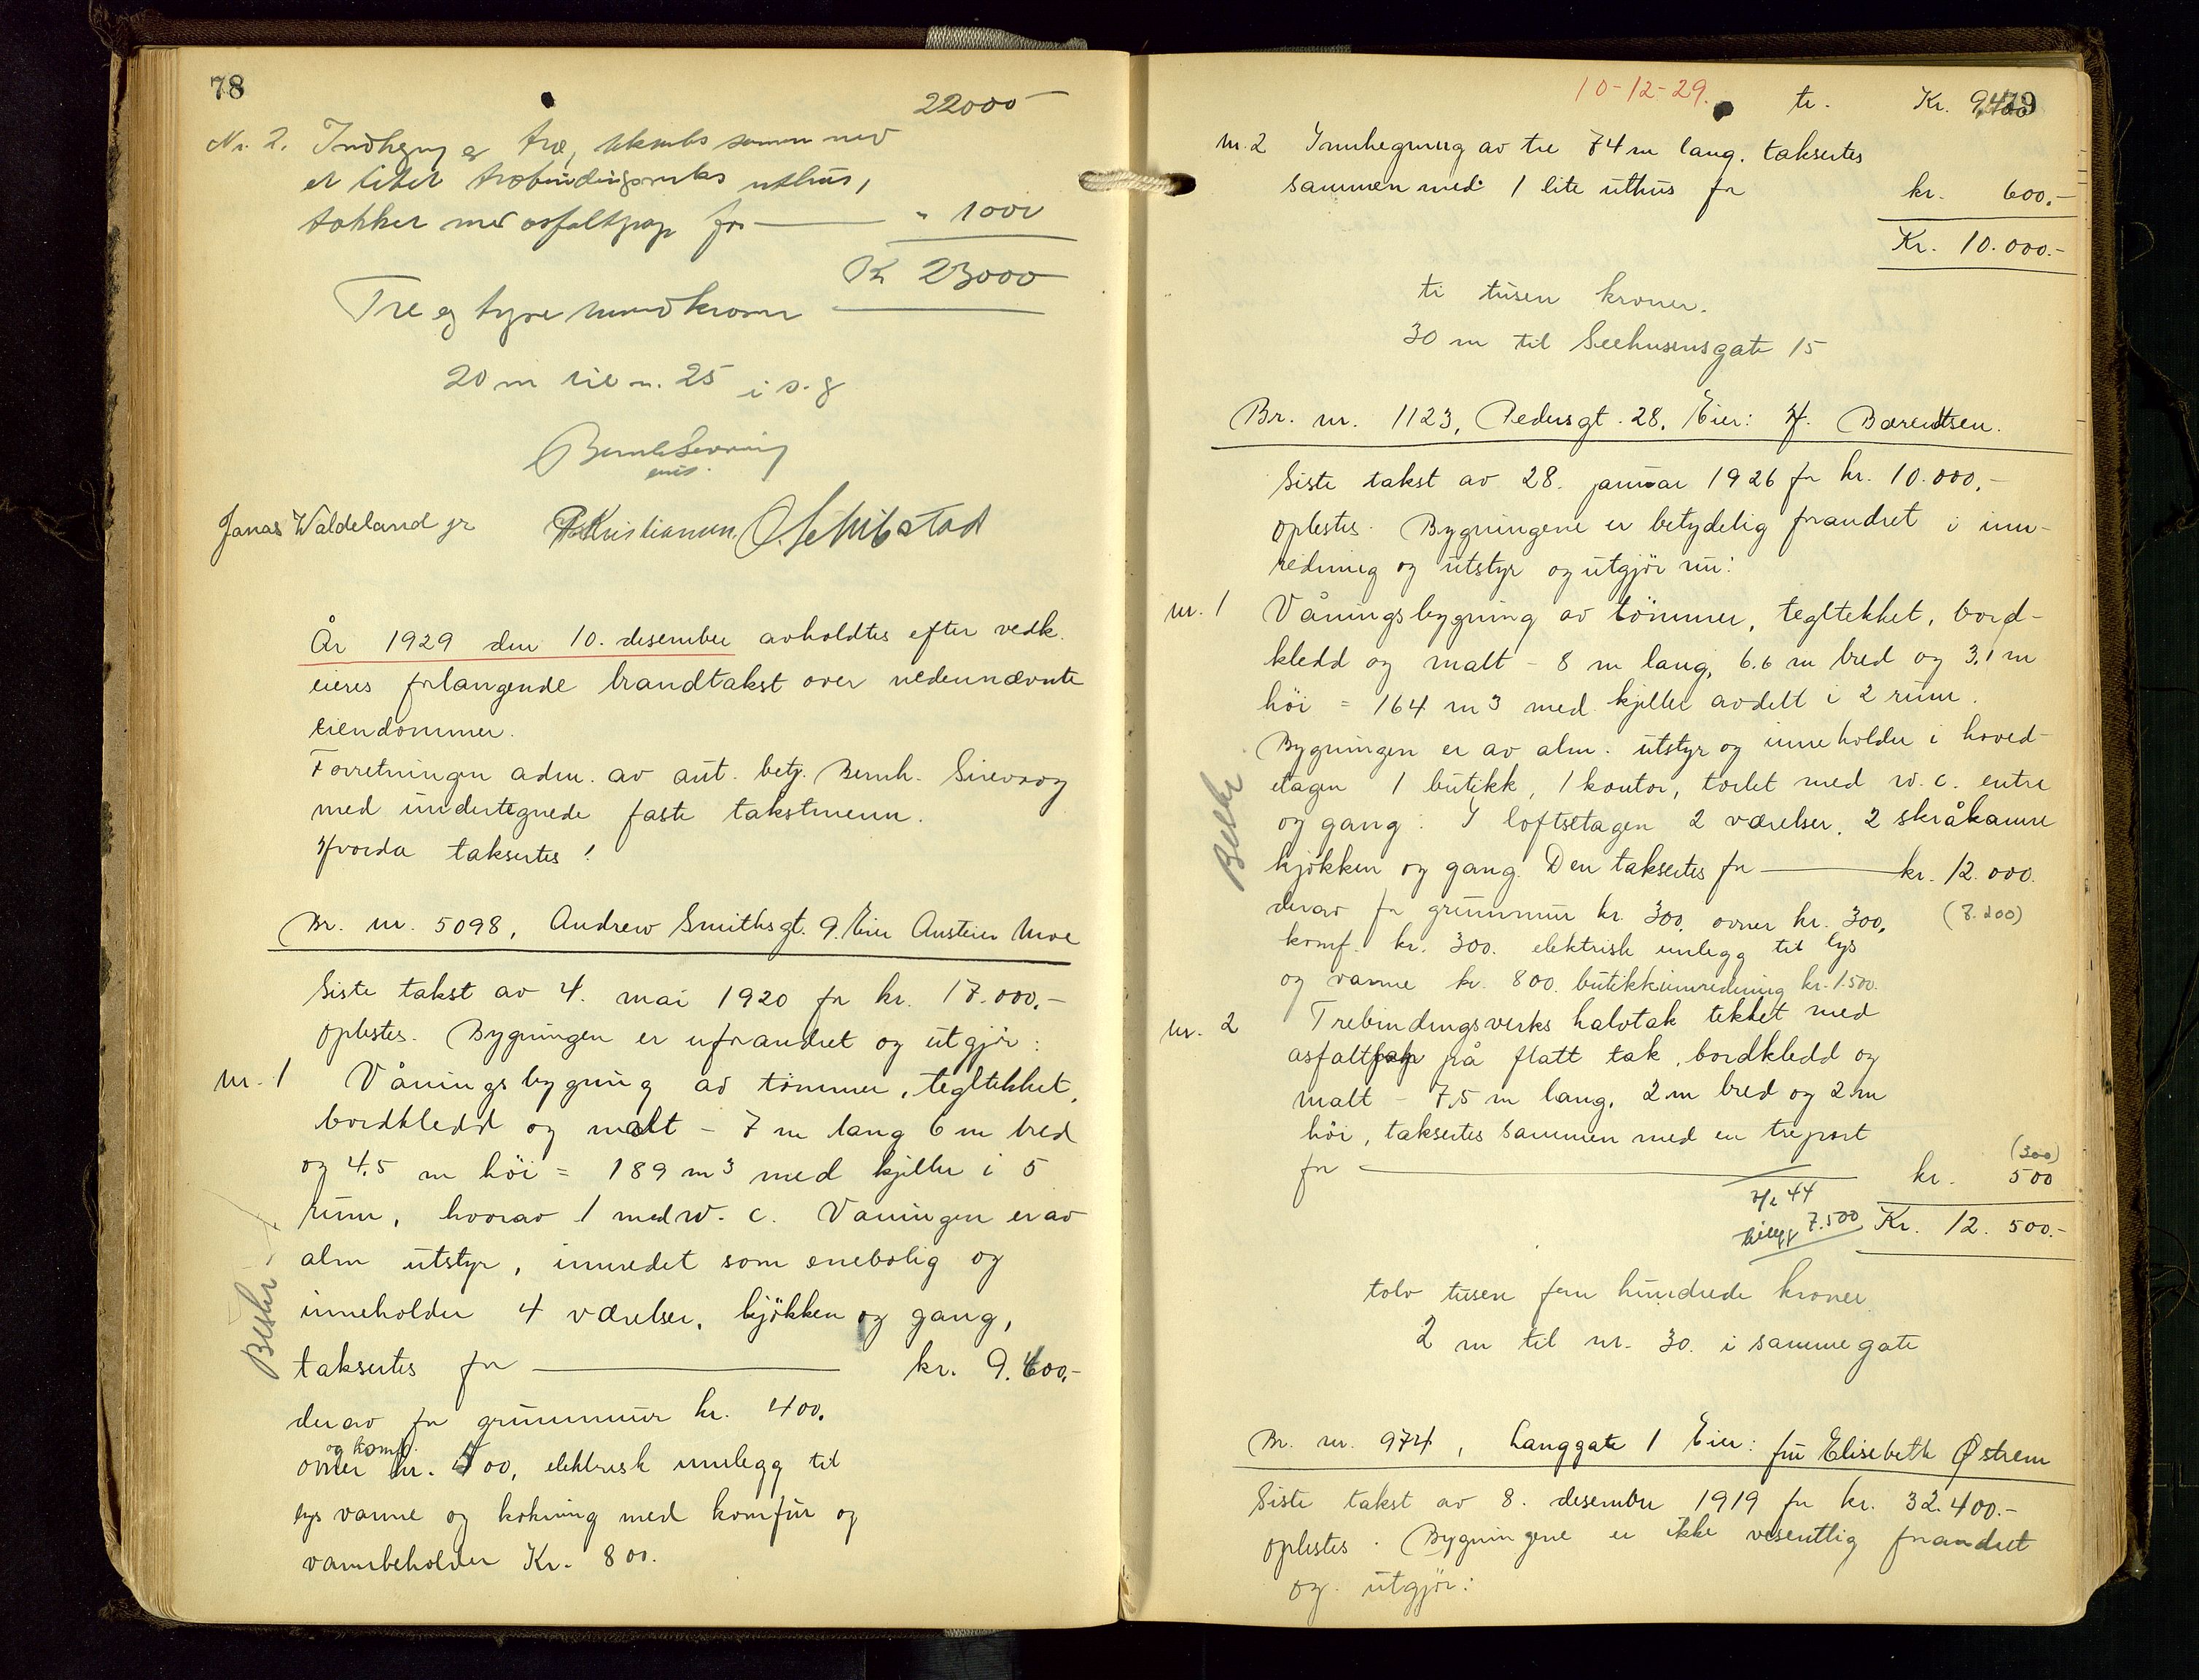 78
22000
Nr. 2. Indhegn av træ, takseres sammen med
et litet træbindingsverks uthus,
tækket med asfaltpap for — " 1000
Kr 23000
Tre og tyve tusend kroner
20 m til n. 25 i s. g
Jonas Waldeland jr P. Kristiansen. O. Schibstad
År 1929 den 10. desember avholdtes efter vedk.
eieres forlangende brandtakst over nedennævnte
eiendommer.
Forretningen adm. av aut. betj. Bernh. Sirevaag
med undertegnede faste takstmenn.
Hvorda taksertes:
Br. nr. 5098, Andrew Smithsgt. 9. Eier Austein Moe
Siste takst av 4. mai 1920 for kr. 17.000.-
oplestes. Bygningen er uforandret og utgjör:
nr. 1 Våningsbygning av tömmer, tegltekket,
bordkledd og malt - 7 m lang 6 m bred
og 4.5 m höi = 189 m3 med kjeller i 5
rum, hvorav 1 med w. c. Våningen er av
alm utstyr, innredet som enebolig og
Beskr
inneholder 4 værelser, kjökken og gang,
taksertes for — kr. 9.400.-
derav for grunnmur kr. 400.
og komf.
ovner kr. 500, elektrisk innlegg til
lys varme og kokning med komfur og
vannbeholder Kr. 800.
10-12-29. tr. Kr. 9.400 79
nr. 2 Innhegning av tre 74 m lang. taksertes
sammen med 1 lite uthus for kr. 600.-
Kr. 10.000.-
ti tusen kroner.
30 m til Seehusensgate 15
Br. nr. 1123, Pedersgt. 28. Eier: H. Børendtsen.
Siste takst av 28. januar 1926 for kr. 10.000.-
oplestes. Bygningene er betydelig forandret i inn-
redning og utstyr og utgjör nu:
nr. 1 Våningsbygning av tömmer, tegltekket, bord-
kledd og malt - 8 m lang, 6.6 m bred og 3,1 m
höi = 164 m3 med kjeller avdelt i 2 rum.
Bygningen er av alm. utstyr og inneholder i hoved-
etagen 1 butikk, 1 kontor, toilet med w. c. entre
Beskr
og gang. I loftsetagen 2 værelser, 2 skråkamre
kjökken og gang. Den taksertes for — kr. 12.000.
derav for grunnmur kr. 300, ovner kr. 300, (7.200)
komf. kr. 300. elektrisk innlegg til lys
og varme kr. 800. butikkinnredning kr. 1.500.
nr. 2 Trebindingsverks halvtak tekket med
asfaltpap på flatt tak, bordkledd og
malt - 7,5 m lang, 2 m bred og 2 m
höi, taksertes sammen med en treport
(300)
for — kr. 500
7/2 44
tillegg 7.500 Kr. 12.500.-
tolv tusen fem hundrede kroner
2 m til nr. 30. i samme gate
Br. nr. 974, Langgate 1 Eier: fru Elisebeth Østrem
Siste takst av 8. desember 1919 for kr. 32.400.-
oplestes. Bygningene er ikke vesentlig forandret
og utgjör: